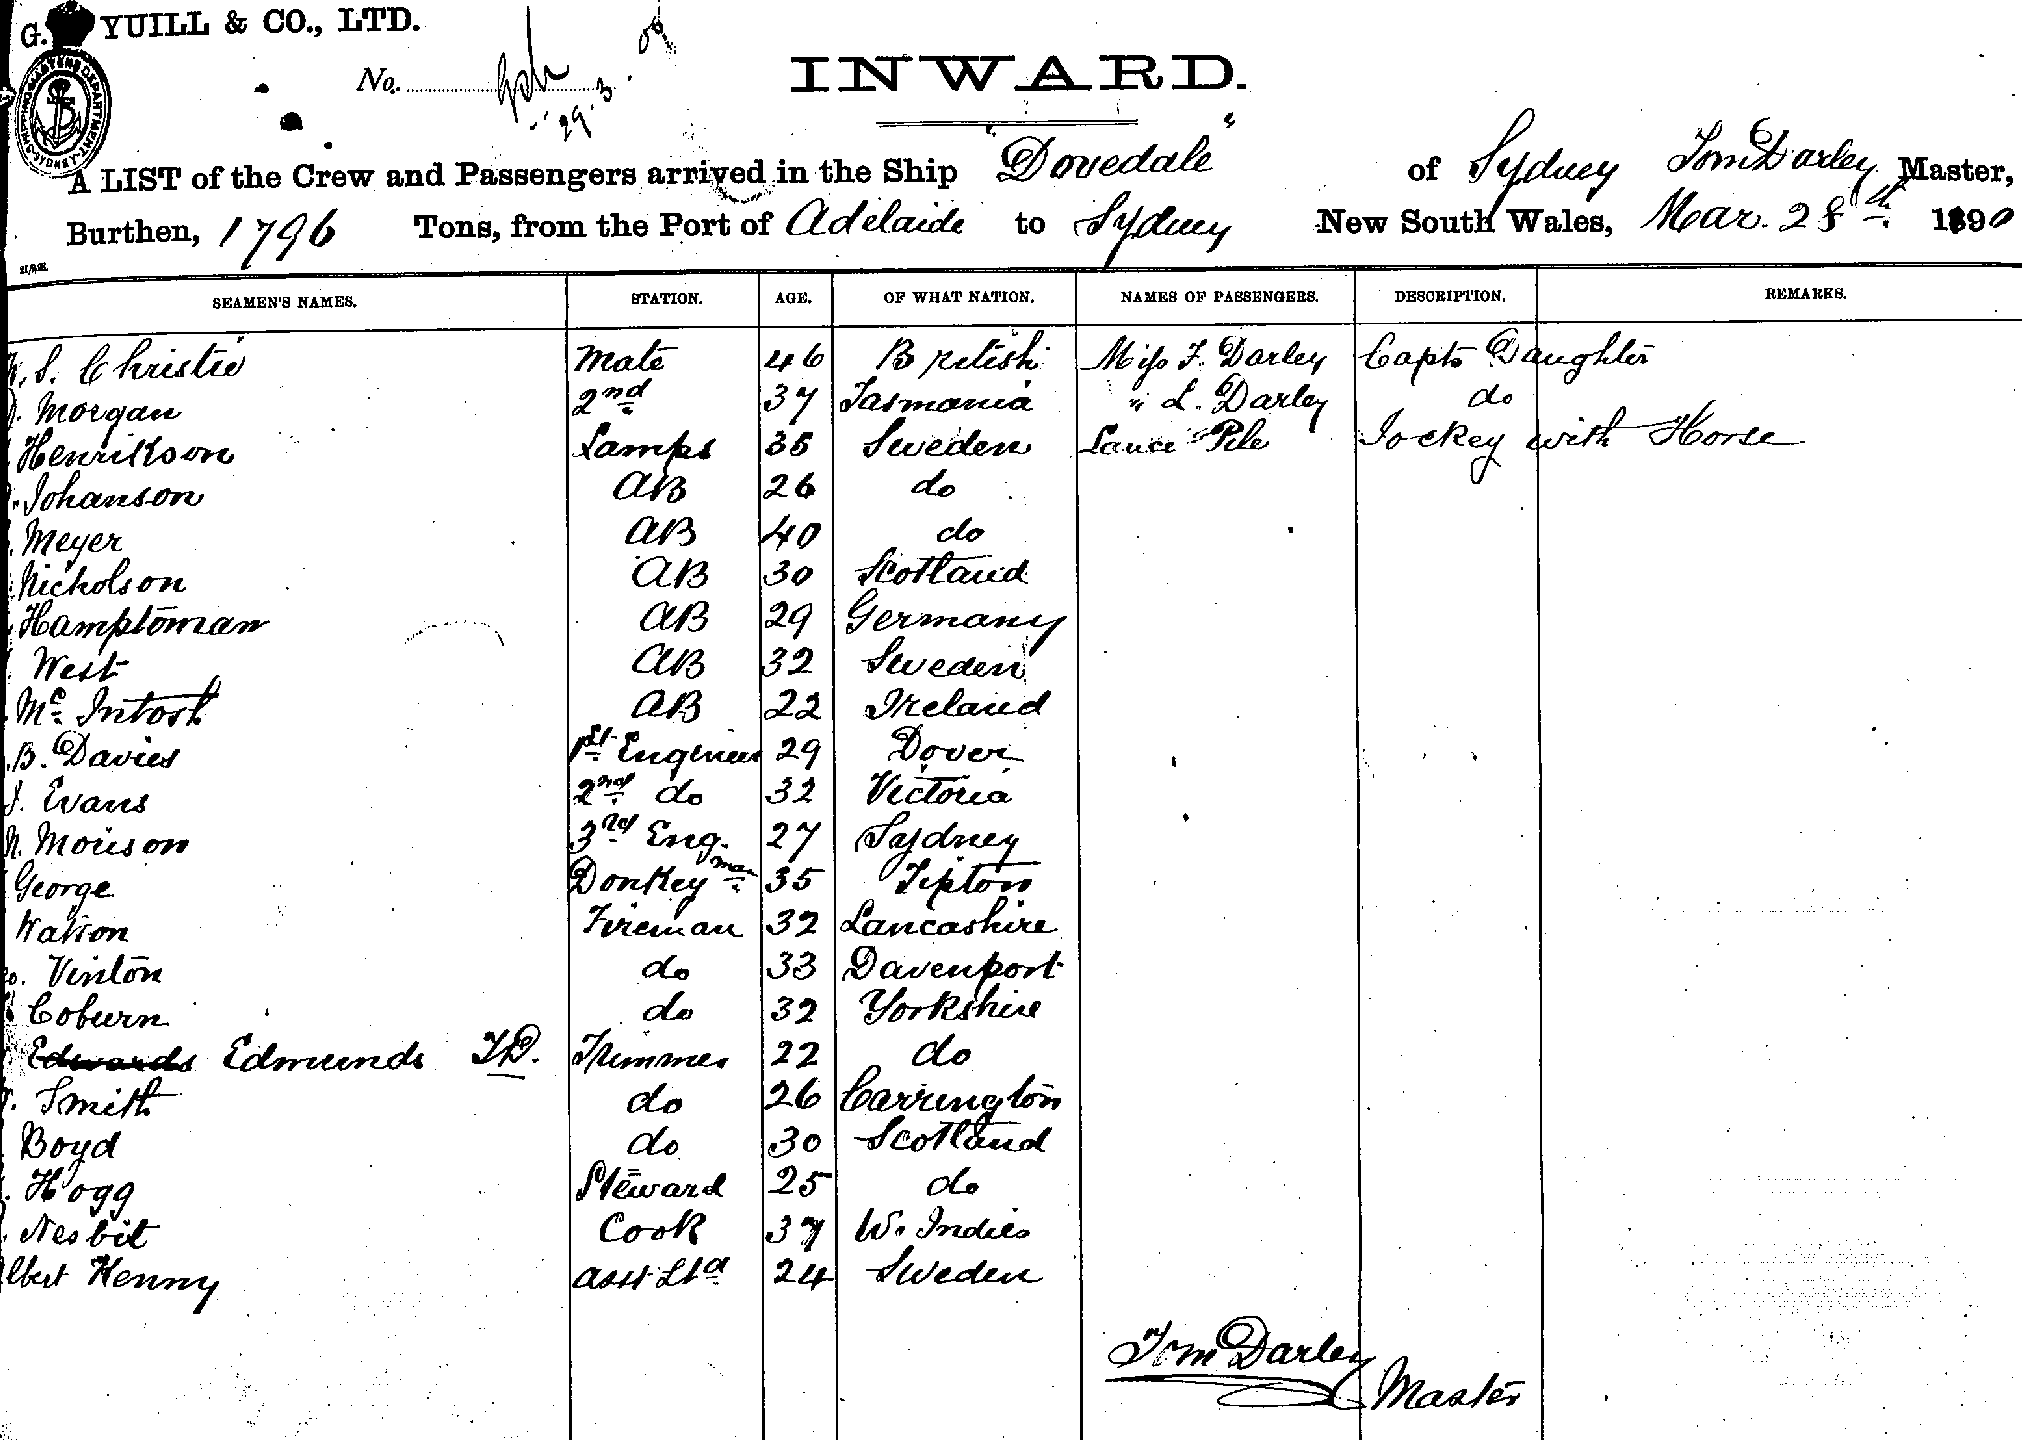 G. YUILL & CO., LTD.
No.
29.3.00
INWARD.
A LIST of the Crew and Passengers arrived in the Ship "Dovedale" of Sydney Tom Darley Master,
Burthen, 1796 Tons, from the Port of Adelaide to Sydney New South Wales, Mar. 28th 1890
SEAMEN'S NAMES. STATION. AGE. OF WHAT NATION. NAMES OF PASSENGERS. DESCRIPTION. REMARKS.
S. Christie Mate 46 British Miss F. Darley Capts Daughter
Morgan 2nd 37 Tasmania " L. Darley do
Henrikson Lamps 35 Sweden Lance Pile Jockey with Horse
Johanson AB 26 do
Meyer AB 40 do
Nickolson AB 30 Scotland
Hamptoman AB 29 Germany
West AB 32 Sweden
Mc Intosh AB 22 Ireland
B. Davies 1st Engineer 29 Dover
J. Evans 2nd do 32 Victoria
Morison 3rd Eng. 27 Sydney
George Donkeyman 35 Tipton
Watson Fireman 32 Lancashire
Vinton do 33 Davenport
Coburn do 32 Yorkshire
Edwards Edmunds T.D. Trimmer 22 do
Smith do 26 Carrington
Boyd do 30 Scotland
Hogg Steward 25 do
Nesbit Cook 37 W. Indies
lbert Henny Asst Std 24 Sweden
Tom Darley
Master